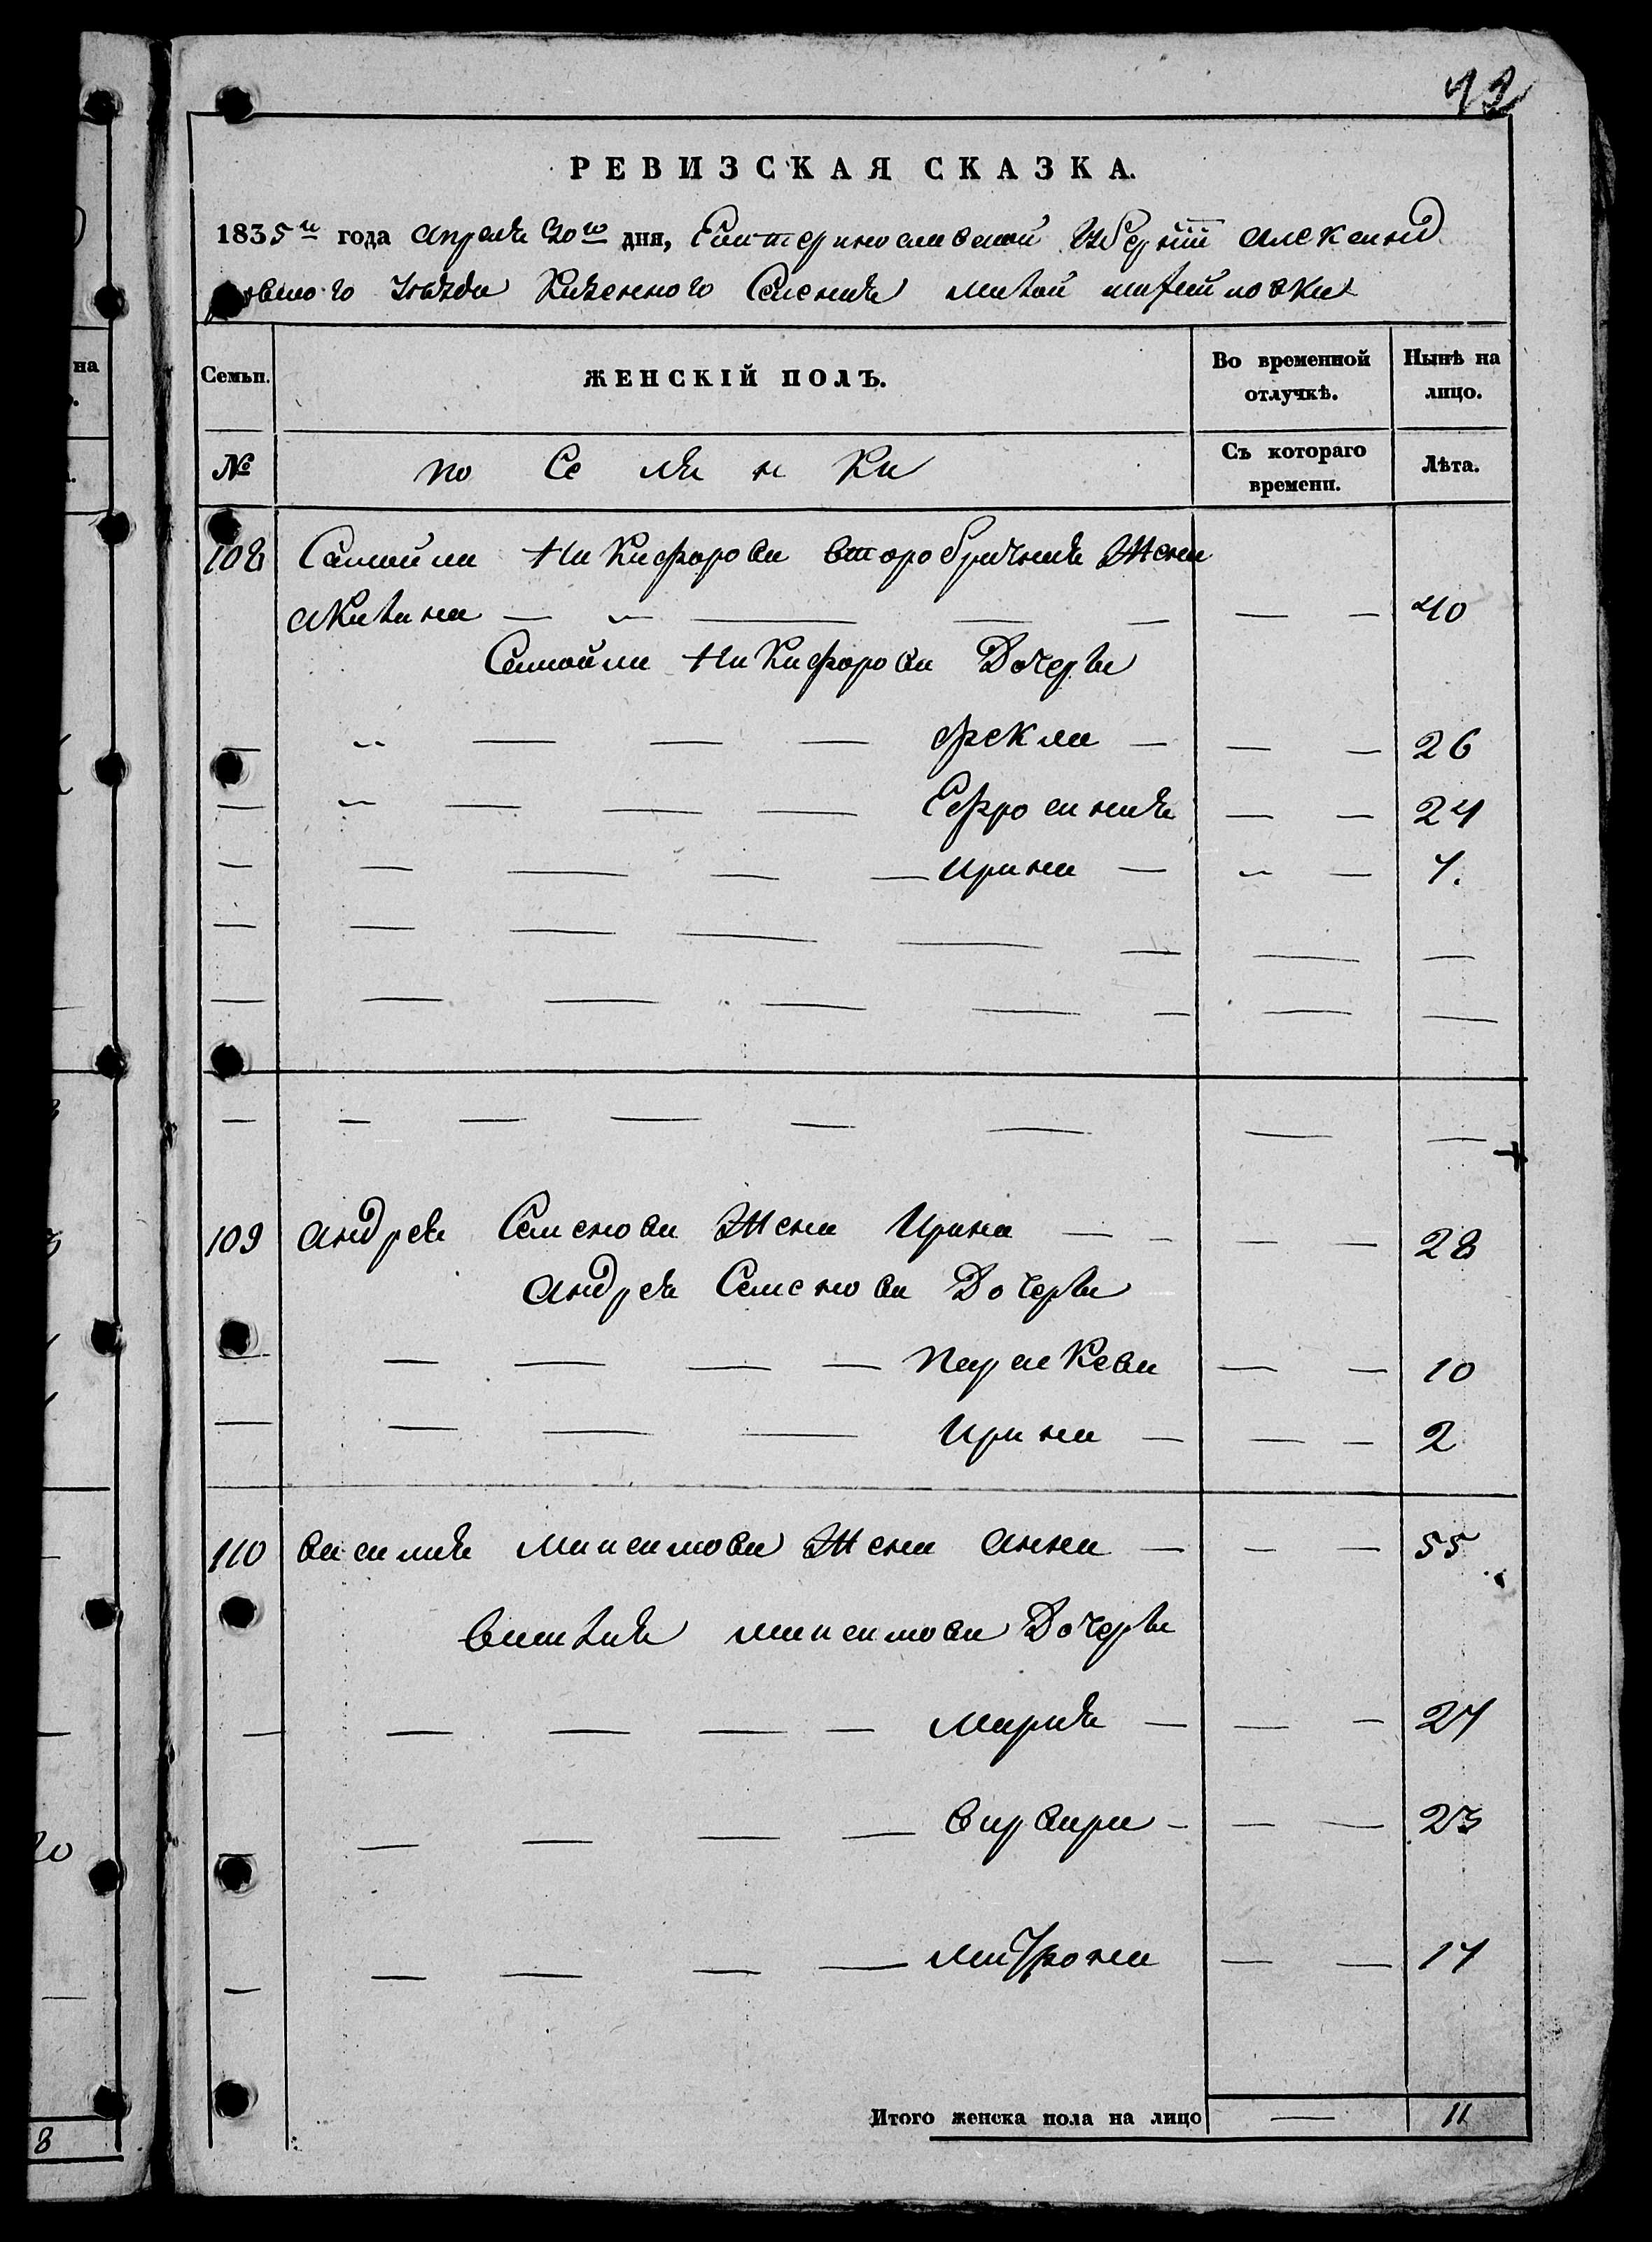 42
РЕВИЗСКАЯ СКАЗКА.
1835го года апреля 30го дня, Екатеринославской Губернии александ
ровского уѣзда Казенного Селения малой михайловки
Семьи. ЖЕНСКІЙ ПОЛЪ. Во временной отлучкѣ. Нынѣ на лицо.
№ по Се ля н ки Съ котораго времени. Лѣта.
108 Самойла Никифорова второбрачная Жена
акилина — — — — — — — 40
Самойла Никифорова Дочери
— — — — — фекла — — — 26
— — — — — Ефросиния — — 24
— — — — — ирина — — — 7.
— — — — — — — —
— — — — — — — —
— — — — — — — —
109 андрея Семенова Жена Ирина — — — — 28
андрея Семенова Дочери
— — — — — параскева — — 10
— — — — ирина — — — 2
110 василия максимова Жена анна — — — 55
василия максимова Дочери
— — — — — мария — — — 27
— — — — варвара — — — 23
— — — — — матрона — — 17
Итого женска пола на лицо — 11
на
8